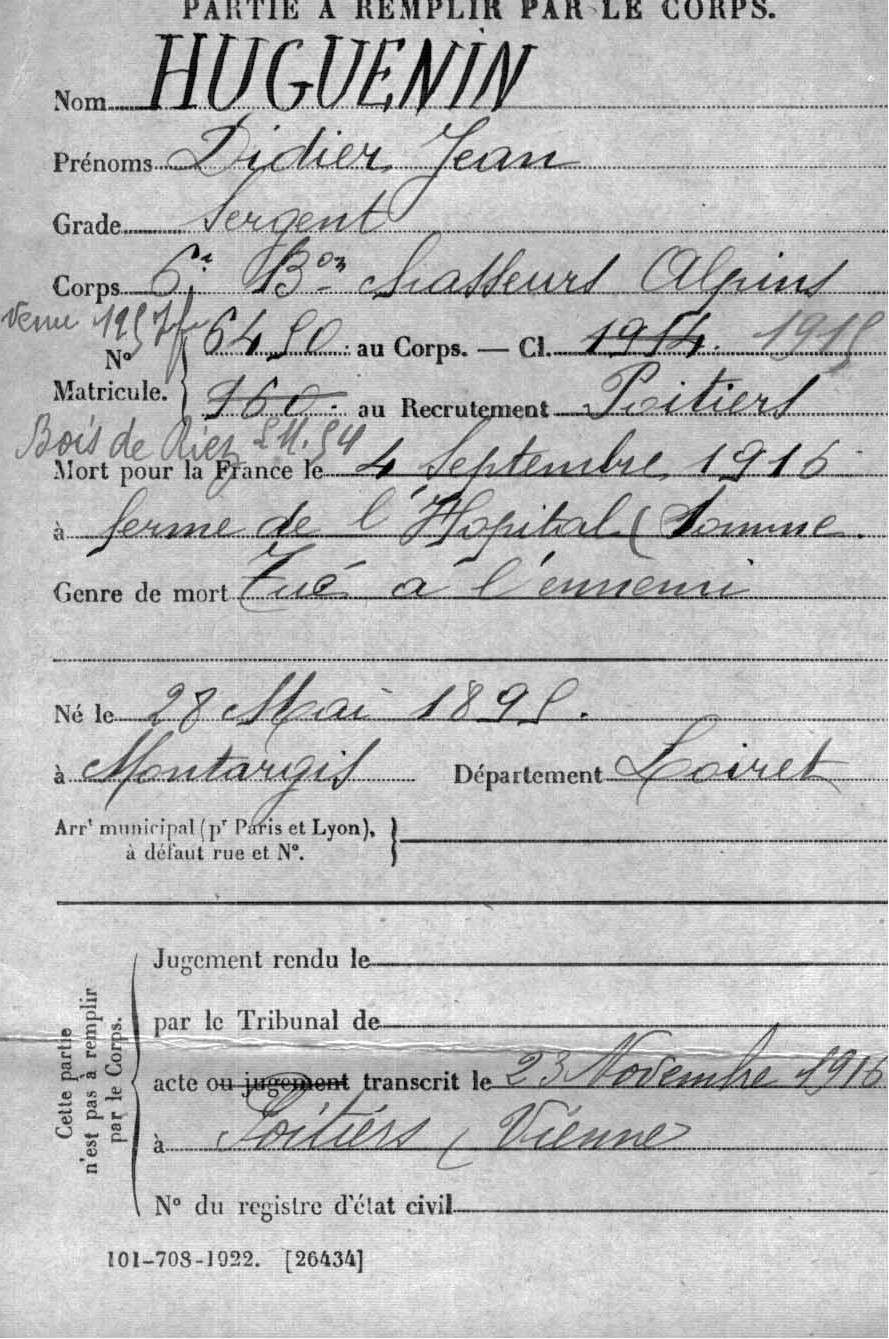 PARTIE A REMPLIR PAR LE CORPS.
Nom HUGUENIN
Prénoms Didier Jean
Grade Sergent
Corps 6e Bon Chasseurs Alpins
N° Matricule. 6450 au Corps. — Cl. 1914. 1915
960. au Recrutement Poitiers
Bois de Riez
Mort pour la France le 4 Septembre 1916
à ferme de l'Hopital (Somme.
Genre de mort Tué à l'ennemi
Né le 28 Mai 1895.
à Montargis Département Loiret
Arrt municipal (pr Paris et Lyon),
à défaut rue et N°.
Cette partie
n'est pas à remplir
par le Corps.
Jugement rendu le
par le Tribunal de
acte ou jugement transcrit le 23 Novembre 1916
à Poitiers (Vienne
N° du registre d'état civil
101-708-1922. [26434]